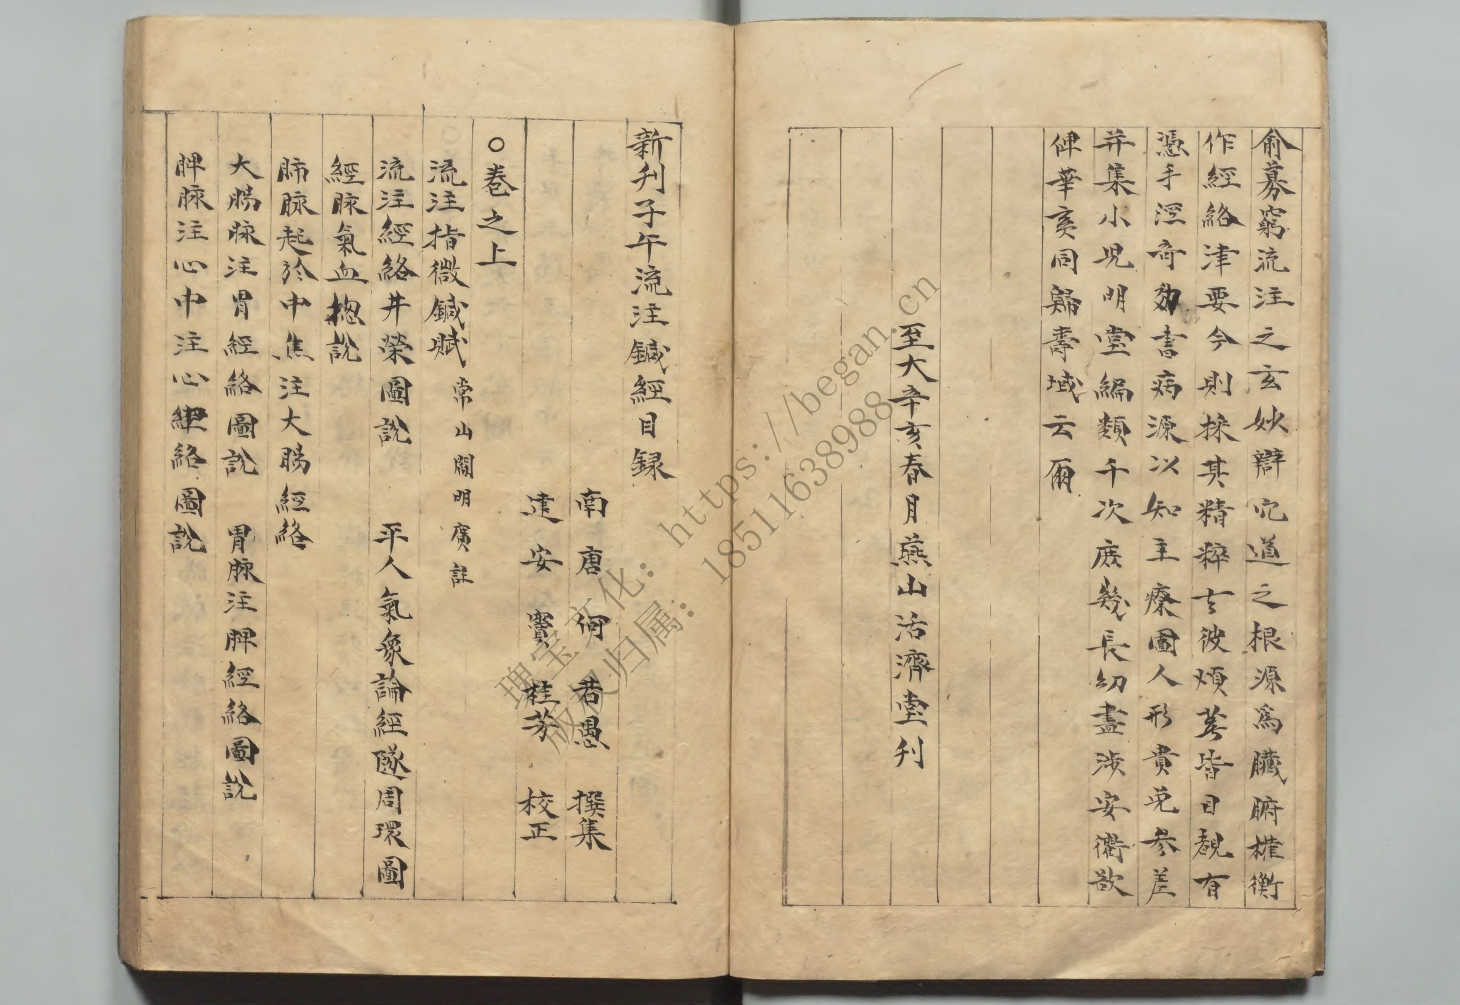 俞募窮流注之玄妙辯穴道之根源為臟腑權衡
作經絡津要今則採其精粹去彼煩蕪皆目覩有
憑手深奇効書病源以知主療圖人形貴免參差
并集小兒明堂編類于次庶幾長幼盡涉安衢欲
俾華亥同歸壽域云爾
至大辛亥春月燕山活濟堂刊
新刋子午流注鍼經目録
南唐 何 若愚 撰集
建安 竇 桂芳 校正
○卷之上
流注指微鍼賦 常山閻明廣註
流注經絡井榮圖說 平人氣象論經隧周環圖
經脉氣血揔說
肺脉起於中焦注大腸經絡
大腸脉注胃經絡圖說 胃脉注脾經絡圖說
脾脉注心中注心經絡圖說
瑰宝文化：https://began.cn
版权归属：18511638988